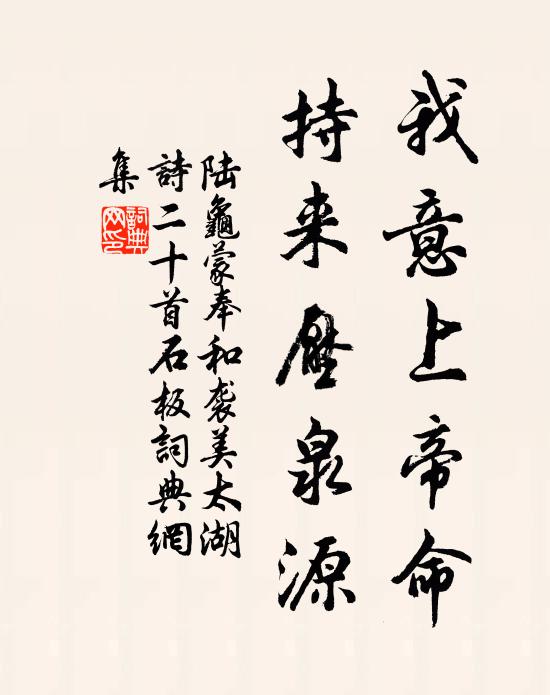 我意上帝命
持来壓泉源
陆龜蒙奉和袭美太湖
詩二十首石板詞典網
集
詞典網印